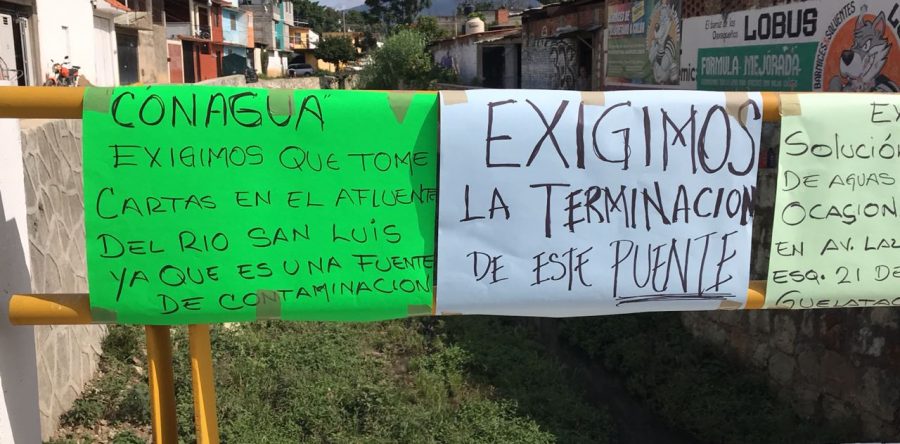 CONAGUA"
EXIGIMOS QUE TOME
CARTAS EN EL AFLUENTE
DEL RIO SAN LUIS
YA QUE ES UNA FUENTE
DE CONTAMINACION
EXIGIMOS
LA TERMINACION
DE ESTE PUENTE
EX
Solución
DE AGUAS
OCASION
EN AV. LAZ
ESQ. 21 DE
GUELATAO
LOBUS
FORMULA MEJORADA
BARNICES
SOLVENTES